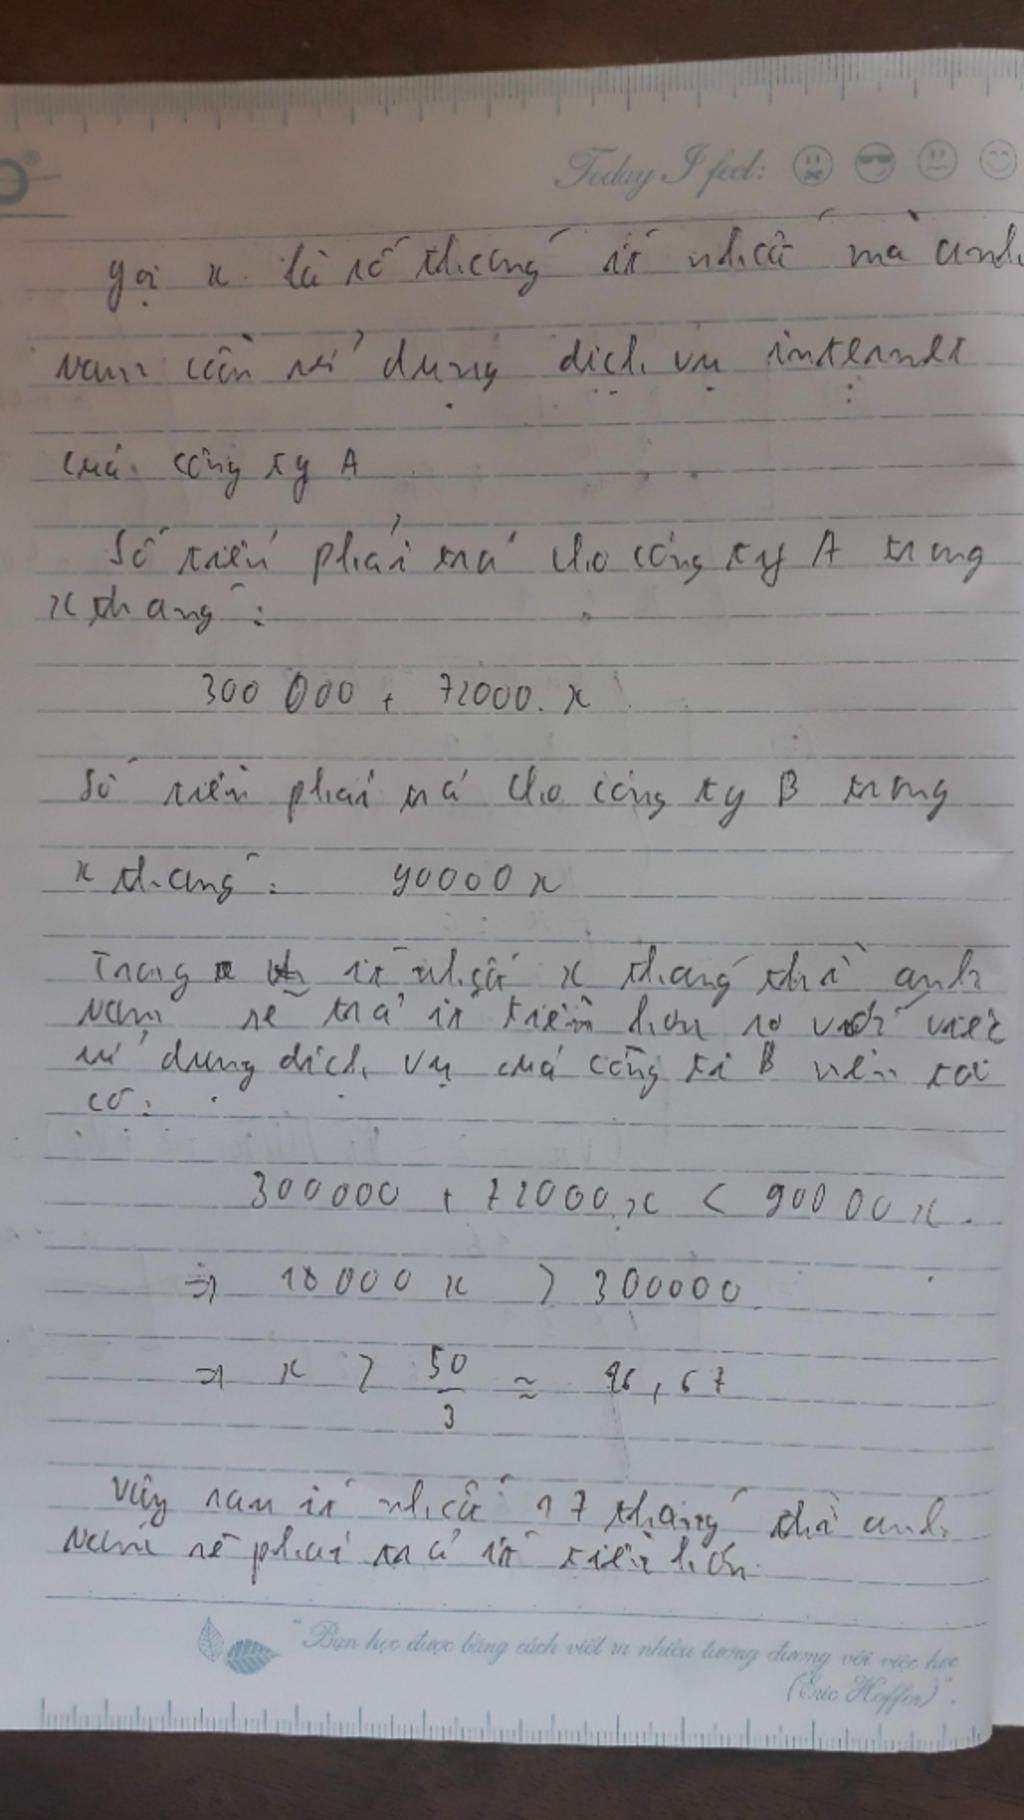 Today I feel:
gọi x là số tháng ít nhất mà anh
nam cần sử dụng dịch vụ internet
của công ty A
Số tiền phải trả cho công ty A trong
x tháng:
300 000 + 72000. x
Số tiền phải trả cho công ty B trong
x tháng: 90000 x
Trong ít nhất x tháng thì anh
nam sẽ trả ít tiền hơn so với việc
sử dụng dịch vụ của công ti B nên ta
có:
300000 + 72000.x < 90000x.
=> 18000 x > 300000
=> x > 50/3 ≈ 16,67
Vậy sau ít nhất 17 tháng thì anh
nam sẽ phải trả ít tiền hơn.
"Bạn học được bằng cách viết ra nhiều tương đương với việc học
(Eric Hoffer)".